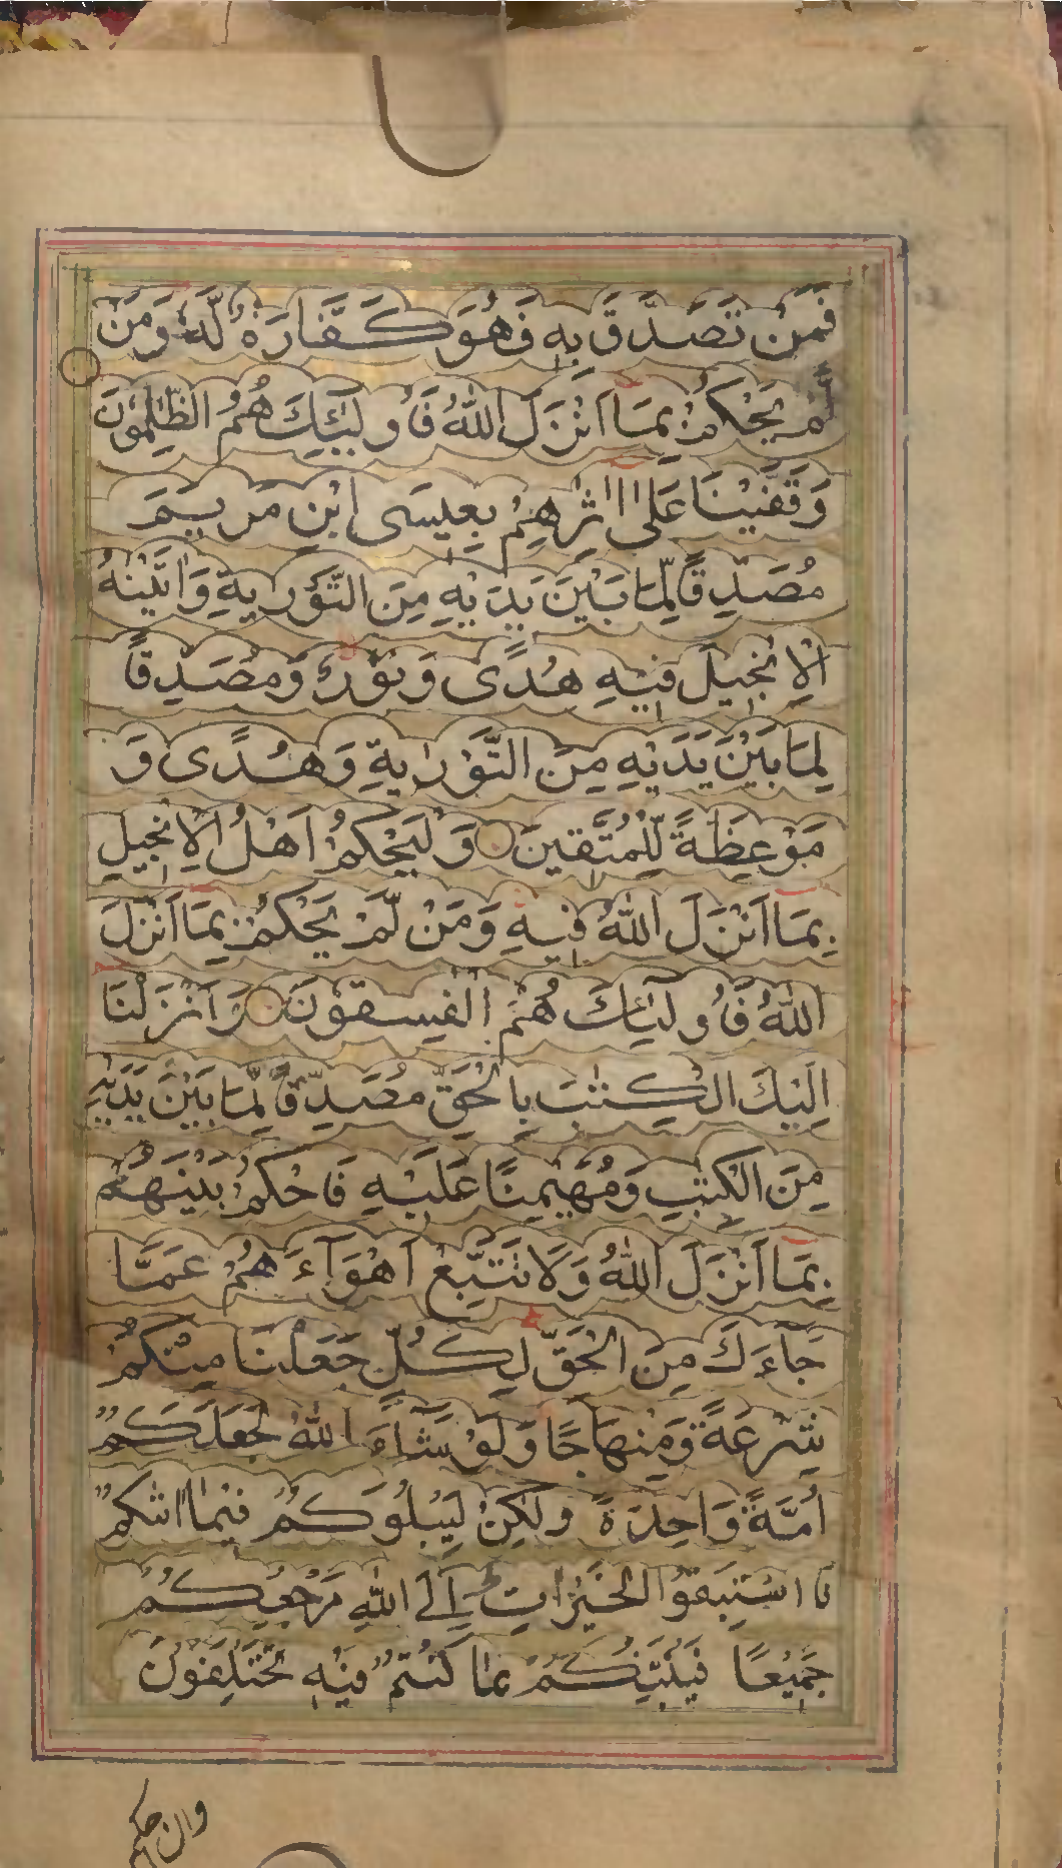 فَمَنْ تَصَدَّقَ بِهٖ فَهُوَ كَفَّارَةٌ لَّهٗ وَمَنْ
لَّمْ يَحْكُمْ بِمَآ اَنْزَلَ اللّٰهُ فَاُولٰٓئِكَ هُمُ الظّٰلِمُوْنَ
وَقَفَّيْنَا عَلٰٓى اٰثَارِهِمْ بِعِيْسَى ابْنِ مَرْيَمَ
مُصَدِّقًا لِّمَا بَيْنَ يَدَيْهِ مِنَ التَّوْرٰىةِ وَاٰتَيْنٰهُ
الْاِنْجِيْلَ فِيْهِ هُدًى وَنُوْرٌ وَمُصَدِّقًا
لِمَا بَيْنَ يَدَيْهِ مِنَ التَّوْرٰىةِ وَهُدًى وَ
مَوْعِظَةً لِّلْمُتَّقِيْنَ وَلْيَحْكُمْ اَهْلُ الْاِنْجِيْلِ
بِمَآ اَنْزَلَ اللّٰهُ فِيْهِ وَمَنْ لَّمْ يَحْكُمْ بِمَآ اَنْزَلَ
اللّٰهُ فَاُولٰٓئِكَ هُمُ الْفٰسِقُوْنَ وَاَنْزَلْنَا
اِلَيْكَ الْكِتٰبَ بِالْحَقِّ مُصَدِّقًا لِّمَا بَيْنَ يَدَيْهِ
مِنَ الْكِتٰبِ وَمُهَيْمِنًا عَلَيْهِ فَاحْكُمْ بَيْنَهُمْ
بِمَآ اَنْزَلَ اللّٰهُ وَلَا تَتَّبِعْ اَهْوَآءَ هُمْ عَمَّا
جَآءَكَ مِنَ الْحَقِّ لِكُلٍّ جَعَلْنَا مِنْكُمْ
شِرْعَةً وَّمِنْهَاجًا وَلَوْ شَآءَ اللّٰهُ لَجَعَلَكُمْ
اُمَّةً وَّاحِدَةً وَلٰكِنْ لِيَبْلُوَكُمْ فِيْمَا اٰتٰىكُمْ
فَاسْتَبِقُوا الْخَيْرَاتِ اِلَى اللّٰهِ مَرْجِعُكُمْ
جَمِيْعًا فَيُنَبِّئُكُمْ بِمَا كُنْتُمْ فِيْهِ تَخْتَلِفُوْنَ
وان حكم